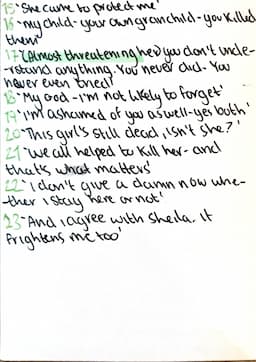 15 'She came to protect me'
16 'my child - your own granchild - you killed
them'
17 '(Almost threatening her) you don't unde-
-rstand anything. You never did. You
never even tried'
18 'My God - I'm not likely to forget'
19 'I'm ashamed of you as well - yes both'
20 'This girl's still dead, isn't she?'
21 'We all helped to kill her - and
that's what matters'
22 'I don't give a damn now whe-
-ther I stay here or not'
23 'And I agree with Sheila. It
frightens me too'